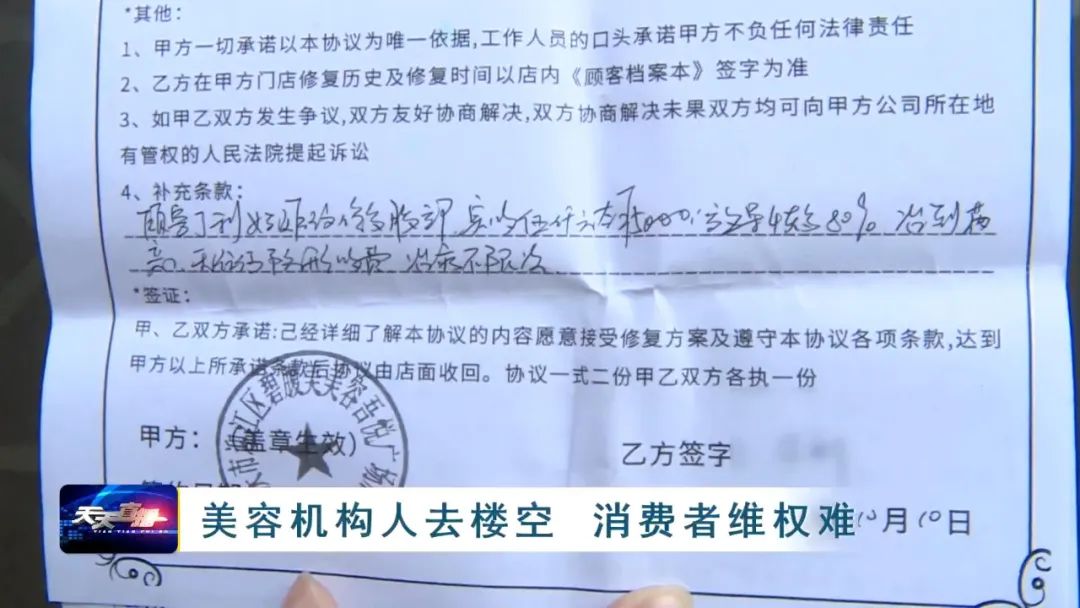 *其他:
1、甲方一切承诺以本协议为唯一依据,工作人员的口头承诺甲方不负任何法律责任
2、乙方在甲方门店修复历史及修复时间以店内《顾客档案本》签字为准
3、如甲乙双方发生争议,双方友好协商解决,双方协商解决未果双方均可向甲方公司所在地
有管权的人民法院提起诉讼
4、补充条款:
80% 治到满
治疗不限次
*签证:
甲、乙双方承诺:己经详细了解本协议的内容愿意接受修复方案及遵守本协议各项条款,达到
甲方以上所承诺条款后协议由店面收回。协议一式二份甲乙双方各执一份
甲方: (盖章生效)
乙方签字
江区碧波天美容吾悦广场
10月10日
天天直播
美容机构人去楼空 消费者维权难